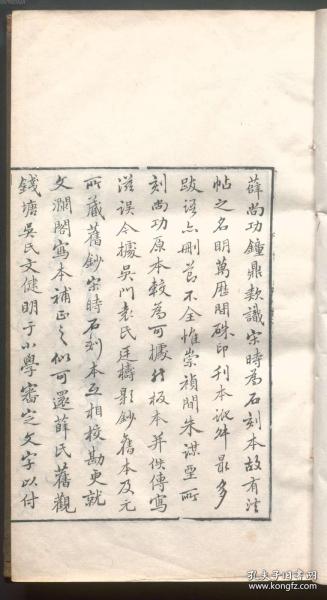 薛尚功鐘鼎款識宋時為石刻本故有法
帖之名明萬曆間硃印刊本訛舛最多
跋語亦刪節不全惟崇禎間朱謀垔所
刻尚功原本較為可據然板本并佚傳寫
滋误今據吳門袁氏廷檮影鈔舊本及元
所藏舊鈔宋時石刻本互相校勘更就
文瀾閣寫本補正之似可還薛氏舊觀
錢塘吳氏文健明于小學審定文字以付
孔夫子旧书网
www.kongfz.com